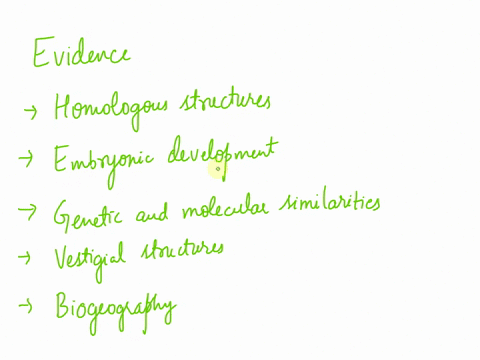 Evidence
→ Homologous structures
→ Embryonic development
→ Genetic and molecular similarities
→ Vestigial structures
→ Biogeography